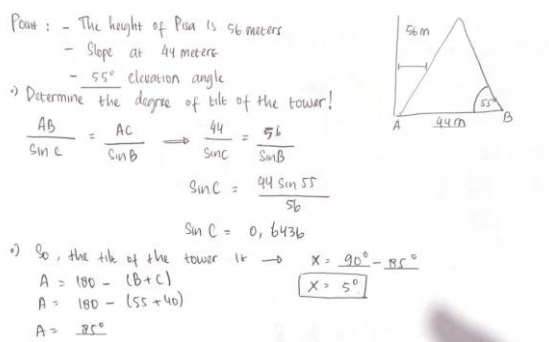 Point : - The height of Pisa is 56 meters
- Slope at 44 meters
- 55° elevation angle
•) Determine the degree of tilt of the tower!
AB/Sin C = AC/Sin B → 44/Sin C = 56/Sin B
Sin C = 44 Sin 55/56
Sin C = 0,6436
•) So, the tilt of the tower is → X = 90° - 85°
A = 180 - (B+C)
X = 5°
A = 180 - (55 + 40)
A = 85°
56 m
55°
A 44 m B